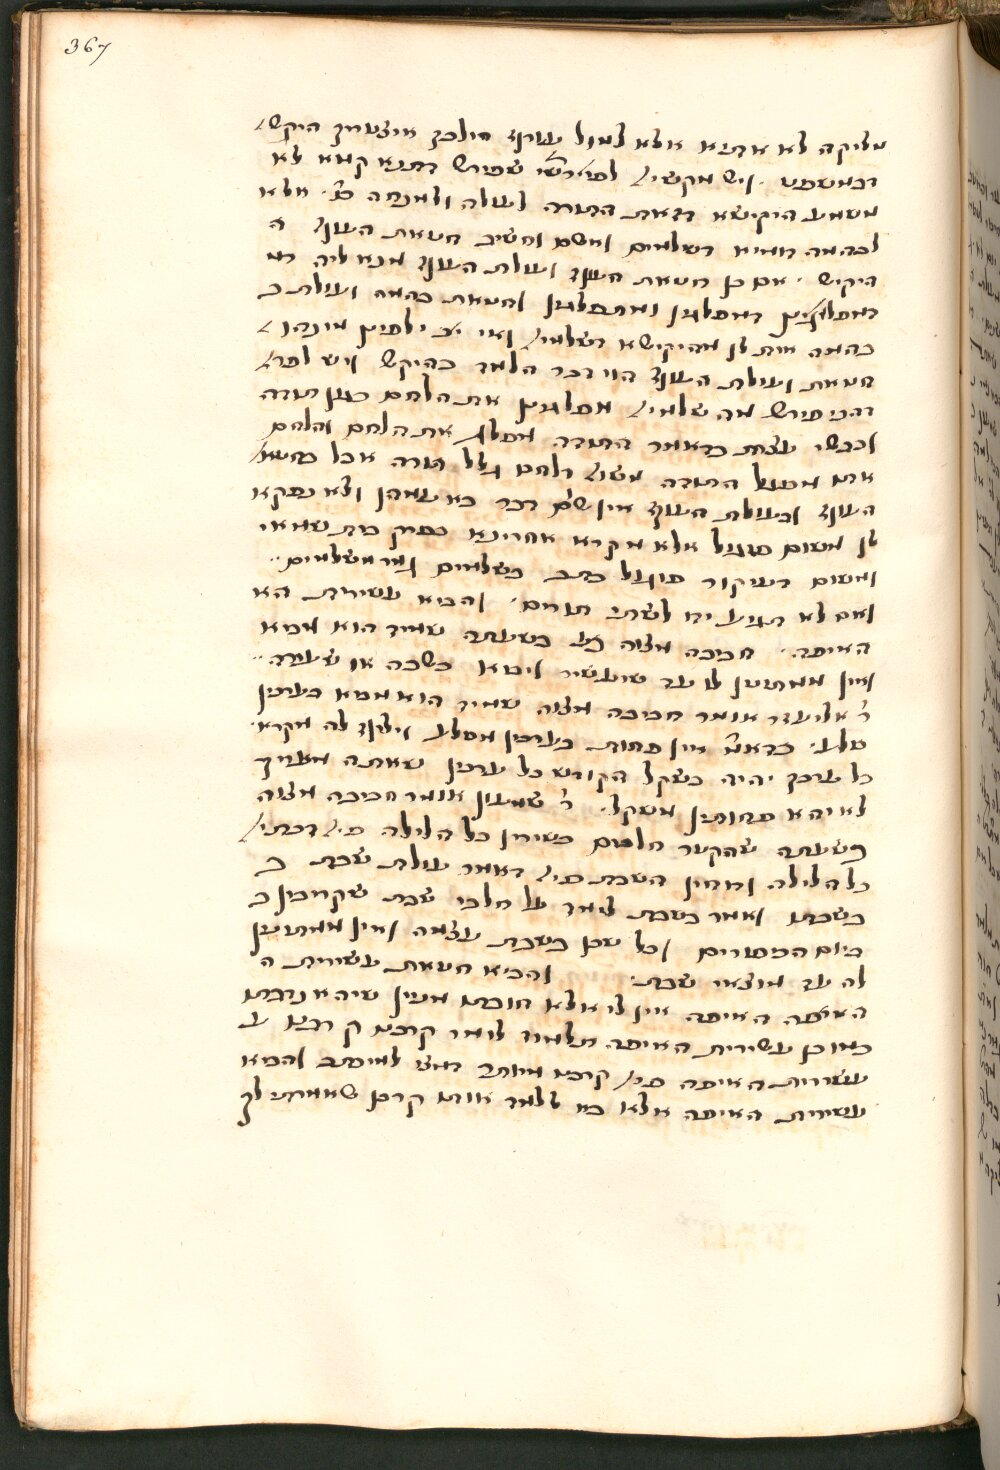 367
מליקה לא אתיא אלא למול עורף הילכך איצטריך היקש׳
דכמשפט . ויש מקשי׳ לפי׳ רש״י שפירש דתנא קמא לא
משמע היקישא דזאת התורה לעולה ולמנחה כו׳. אלא
לבהמה דומיא דשלמים ואשם וחשיב חטאת העוף ה
היקיש . אם כן חטאת העוף ועולת העוף מנא ליה
דמפלגינן ומתפגלין וחטאת בהמה ועולת ב
בהמה אית לן מהיקישא דשלמי׳ ואי ילפינן מינהו׳
חטאת ועולת העוף הוי דבר הלמד בהיקש ויש לפר׳
דהכי פירש מה שלמי׳ מפגלין את הלחם כגון תודה
וכבשי עצרת כדאמר התודה מפגל את הלחם והלחם
אינו מפגל התודה משו׳ דלחם גלל תודה אבל בחטא׳
העוף ובעולת העוף אין שם דבר בא עמהן ולא נפקא
לן משום פגול אלא מקרא אחרינא בפרק בית שמאי
ומשום דעיקר פיגול כתב בשלמים גמר משלמים ..
ואם לא תגיע ידו לשתי תורים . והביא עשירית הא
האיפה . חביבה מצוה בשעתה שמיד הוא מביא
ואין ממתינין לו עד שיעשיר ויביא כשבה או שעירה ..
ר׳ אליעזר אומר חביבה מצוה שמיד הוא מביא בערכין
סלע . כדאמ׳ אין פחות בערכין מסלע ויליף לה מקרא .
כל ערכך יהיה בשקל הקודש כל ערכין שאתה מעריך
לא יהא פחותין משקל . ר׳ שמעון אומר חביבה מצוה
בשעתה שהקטר חלבים כשירין כל הלילה פי׳ דכתי׳
כל הלילה ודוחין השבת פי׳ דאמר עולת שבת ב
בשבתו ואמר בשבת לימד על חלבי שבת שקריבין ב
ביום הכיפורים וכל שכן בשבת עצמה ואין ממתינין
לה עד מוצאי שבת . והביא חטאת עשירית ה
האיפה האיפה אין לי אלא חובתו מנין שיהא נדבתו
כמו כן עשירית האיפה תלמוד לומר קרבנו
עשירית האיפה פי׳ קרבנו מיותר דמצי למיכתב והביא
עשירית האיפה אלא בא ללמד אותו קרבן שאמרתי לך